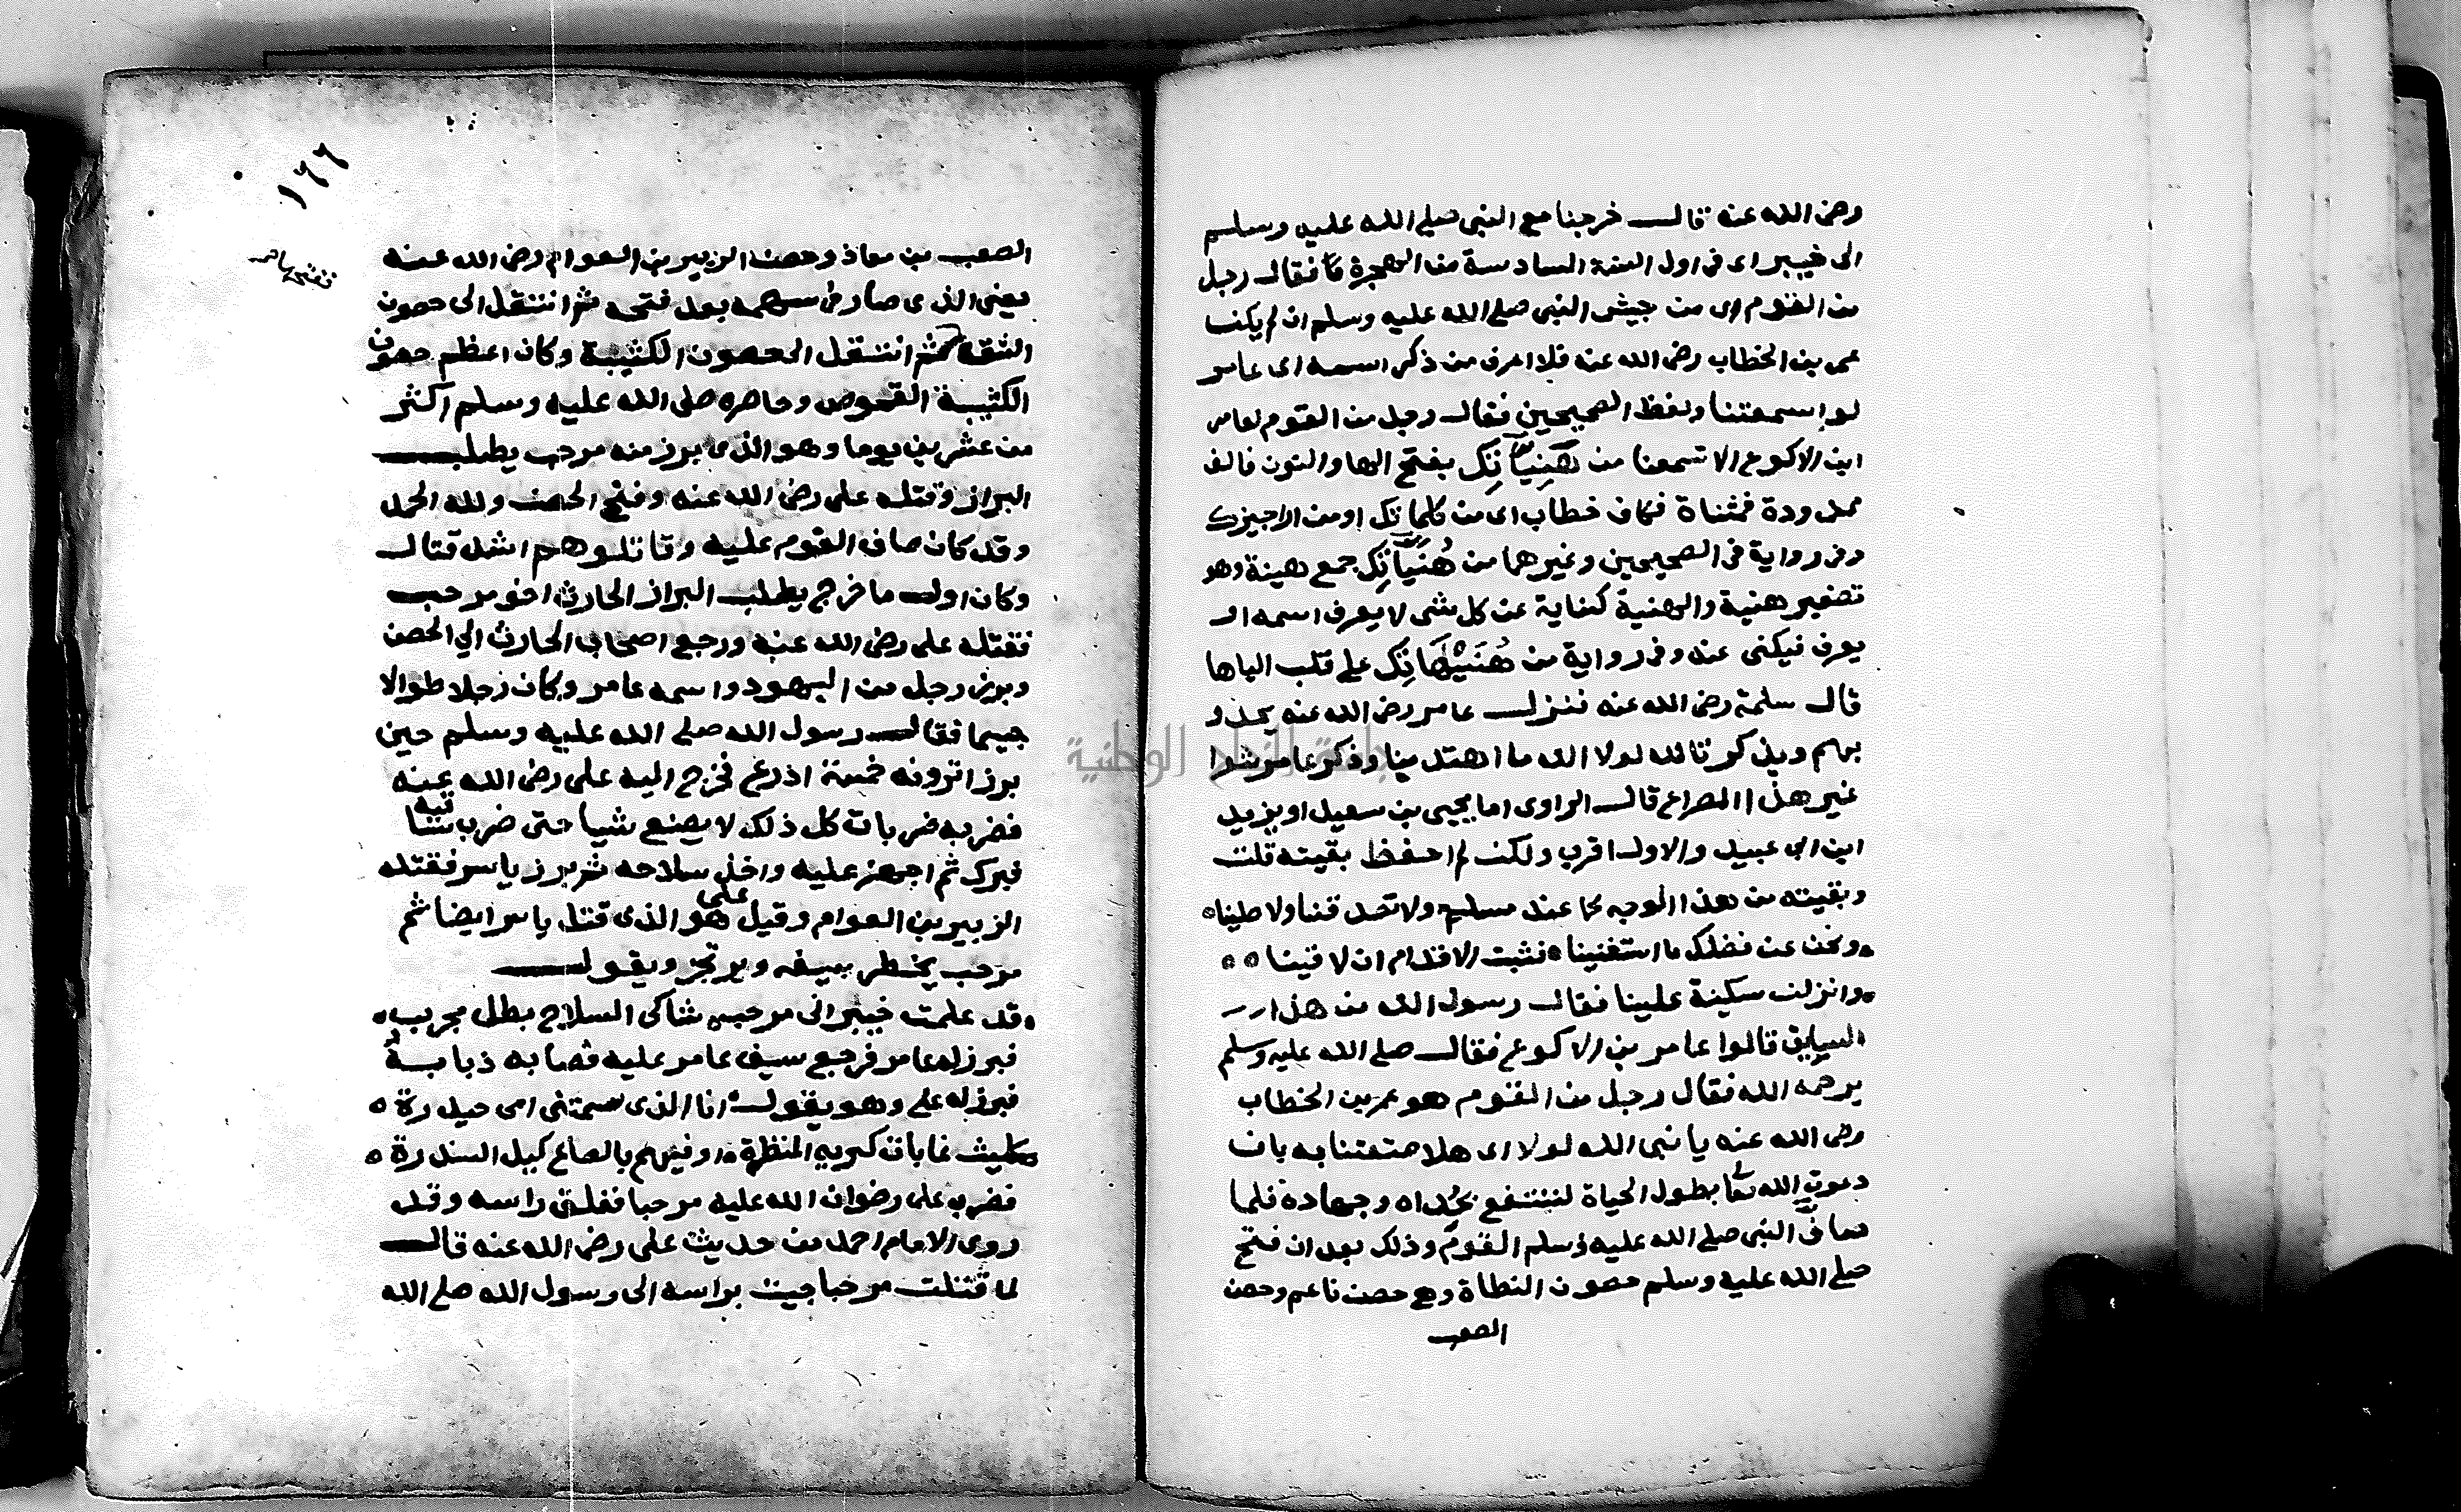 رضى الله عنه قال خرجنا مع النبى صلى الله عليه وسلم
الى خيبر اى فى اول السنة السادسة من الهجرة فقال رجل
من القوم اى من جيش النبى صلى الله عليه وسلم ان لم يكن
عمر بن الخطاب رضى الله عنه فلا اعرف من ذكر اسمه اى عامر
لو اسمعتنا ولفظ الصحيحين فقال رجل من القوم لعامر
ابن الاكوع الا تسمعنا من هَنِيَّاتِكَ بفتح الها والنون فالف
ممدودة فمثناة فكاف خطاب اى من كلماتك او من اراجيزك
وفى رواية فى الصحيحين وغيرهما من هُنَيَّاتِكَ جمع هنية وهو
تصغير هنية والهنية كناية عن كل شى لا يعرف اسمه او
يعرف فيكنى عنه وفى رواية من هُنَيْهَاتِكَ على قلب اليا ها
قال سلمة رضى الله عنه فنزل عامر رضى الله عنه يحدو
بهم ويذكر تالله لولا الله ما اهتدينا وذكر عامر شعرا
غير هذا المصراع قال الراوى اما يحيى بن سعيد او يزيد
ابن ابى عبيد والاول اقرب ولكن لم احفظ بقيته قلت
وبقيته من هذا الوجه كما عند مسلم ولا تصدقنا ولا صلينا
ونحن عن فضلك ما استغنينا فثبت الاقدام ان لاقينا
وانزلن سكينة علينا فقال رسول الله من هذا
السايق قالوا عامر بن الاكوع فقال صلى الله عليه وسلم
يرحمه الله فقال رجل من القوم هو عمر بن الخطاب
رضى الله عنه يا نبى الله لولا اى هلا متعتنا به بان
دعوت الله تعا بطول الحياة لننتفع بحداه وجهاده فلما
صاف النبى صلى الله عليه وسلم القوم وذلك بعد ان فتح
صلى الله عليه وسلم حصون النطاة وهى حصن ناعم وحصن
الصعب
١٦٦
الصعب بن معاذ وحصن الزبير بن العوام رضى الله عنه
يعنى الذى صار فى سهمه بعد فتحه ثم انتقل الى حصون
الشق ثم انتقل الى حصون الكثيبة وكان اعظم حصون
الكثيبة القموص وحاصره صلى الله عليه وسلم اكثر
من عشرين يوما وهو الذى برز منه مرحب يطلب
البراز وقتله على رضى الله عنه وفتح الحصن ولله الحمد
وقد كان صاف القوم عليه وقاتلوهم اشد قتال
وكان اول ما خرج يطلب البراز الحارث اخو مرحب
فقتله على رضى الله عنه ورجع اصحاب الحارث الى الحصن
وبرز رجل من اليهود واسمه عامر وكان رجلا طوالا
جسيما فقال رسول الله صلى الله عليه وسلم حين
برز اترونه خمسة اذرع فخرج اليه على رضى الله عنه
فضربه ضربات كل ذلك لا يصنع شيا حتى ضرب ساقيه
فبرك ثم اجهز عليه واخذ سلاحه ثم برز ياسر فقتله
الزبير بن العوام وقيل على هو الذى قتل ياسر ايضا ثم
مرحب يخطر بسيفه ويرتجز ويقول
قد علمت خيبر انى مرحب شاكى السلاح بطل مجرب
فبرز له عامر فرجع سيف عامر عليه فصابه ذبابه
فبرز له على وهو يقول انا الذى سمتنى امى حيدرة
كليث غابات كريه المنظرة اوفيهم بالصاع كيل السندرة
فضرب على رضوان الله عليه مرحبا ففلق راسه وقد
روى الامام احمد من حديث على رضى الله عنه قال
لما قتلت مرحبا جيت براسه الى رسول الله صلى الله
جامعة النجاح الوطنية